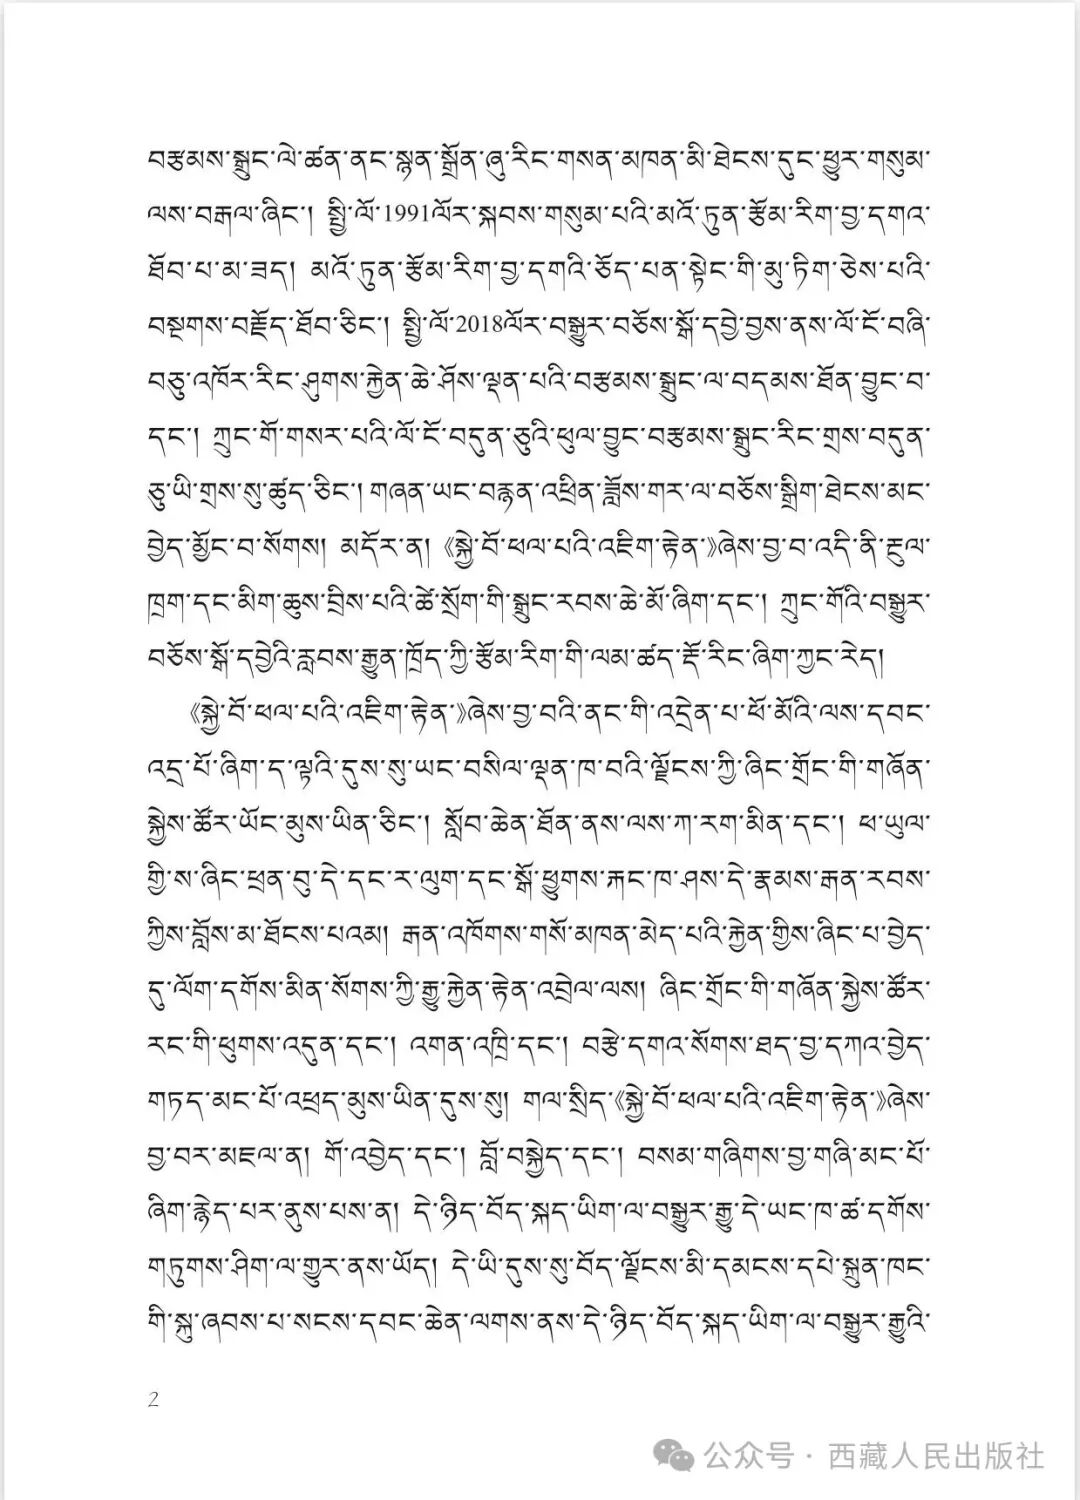 བརྩམས་སྒྲུང་ལེ་ཚན་ནང་སྙན་སྒྲོན་ཞུ་རིང་གསན་མཁན་མི་ཐེངས་དུང་ཕྱུར་གསུམ་
ལས་བརྒལ་ཞིང་། སྤྱི་ལོ་1991ལོར་སྐབས་གསུམ་པའི་མའོ་ཏུན་རྩོམ་རིག་བྱ་དགའ་
ཐོབ་པ་མ་ཟད། མའོ་ཏུན་རྩོམ་རིག་བྱ་དགའི་ཅོད་པན་སྟེང་གི་མུ་ཏིག་ཅེས་པའི་
བསྔགས་བརྗོད་ཐོབ་ཅིང་། སྤྱི་ལོ་2018ལོར་བསྒྱུར་བཅོས་སྒོ་དབྱེ་བྱས་ནས་ལོ་ངོ་བཞི་
བཅུ་འཁོར་རིང་ཤུགས་རྐྱེན་ཆེ་ཤོས་ལྡན་པའི་བརྩམས་སྒྲུང་ལ་བདམས་ཐོན་བྱུང་བ་
དང་། ཀྲུང་གོ་གསར་པའི་ལོ་ངོ་བདུན་ཅུའི་ཕུལ་བྱུང་བརྩམས་སྒྲུང་རིང་གྲས་བདུན་
ཅུ་ཡི་གྲས་སུ་ཚུད་ཅིང་། གཞན་ཡང་བརྙན་འཕྲིན་ཟློས་གར་ལ་བཅོས་སྒྲིག་ཐེངས་མང་
བྱེད་མྱོང་བ་སོགས། མདོར་ན། 《སྐྱེ་བོ་ཕལ་པའི་འཇིག་རྟེན་》ཞེས་བྱ་བ་འདི་ནི་རྔུལ་
ཁྲག་དང་མིག་ཆུས་བྲིས་པའི་ཚེ་སྲོག་གི་སྒྲུང་རབས་ཆེ་མོ་ཞིག་དང་། ཀྲུང་གོའི་བསྒྱུར་
བཅོས་སྒོ་དབྱེའི་རླབས་རྒྱུན་ཁྲོད་ཀྱི་རྩོམ་རིག་གི་ལམ་ཚད་རྡོ་རིང་ཞིག་ཀྱང་རེད།
《སྐྱེ་བོ་ཕལ་པའི་འཇིག་རྟེན་》ཞེས་བྱ་བའི་ནང་གི་འདྲེན་པ་ཕོ་མོའི་ལས་དབང་
འདྲ་པོ་ཞིག་ད་ལྟའི་དུས་སུ་ཡང་བསིལ་ལྡན་ཁ་བའི་ལྗོངས་ཀྱི་ཞིང་གྲོང་གི་གཞོན་
སྐྱེས་ཚོར་ཡོང་མུས་ཡིན་ཅིང་། སློབ་ཆེན་ཐོན་ནས་ལས་ཀ་རག་མིན་དང་། ཕ་ཡུལ་
གྱི་ས་ཞིང་ཕྲན་བུ་དེ་དང་ར་ལུག་དང་སྒོ་ཕྱུགས་རྐང་ཁ་ཤས་དེ་རྣམས་རྒན་རབས་
ཀྱིས་བློས་མ་ཐོངས་པའམ། རྒན་འཁོགས་གསོ་མཁན་མེད་པའི་རྐྱེན་གྱིས་ཞིང་པ་བྱེད་
དུ་ལོག་དགོས་མིན་སོགས་ཀྱི་རྒྱུ་རྐྱེན་རྟེན་འབྲེལ་ལས། ཞིང་གྲོང་གི་གཞོན་སྐྱེས་ཚོར་
རང་གི་ཕུགས་འདུན་དང་། འགན་འཁྲི་དང་། བརྩེ་དགའ་སོགས་ཐད་བྱ་དཀའ་བྱེད་
གཏད་མང་པོ་འཕྲད་མུས་ཡིན་དུས་སུ། གལ་སྲིད་《སྐྱེ་བོ་ཕལ་པའི་འཇིག་རྟེན་》ཞེས་
བྱ་བར་མཇལ་ན། གོ་འབྱེད་དང་། བློ་བསྐྱེད་དང་། བསམ་གཞིགས་བྱ་གཞི་མང་པོ་
ཞིག་རྙེད་པར་ནུས་པས་ན། དེ་ཉིད་བོད་སྐད་ཡིག་ལ་བསྒྱུར་རྒྱུ་དེ་ཡང་ཁ་ཚ་དགོས་
གཏུགས་ཤིག་ལ་གྱུར་ནས་ཡོད། དེ་ཡི་དུས་སུ་བོད་ལྗོངས་མི་དམངས་དཔེ་སྐྲུན་ཁང་
གི་སྐུ་ཞབས་པ་སངས་དབང་ཆེན་ལགས་ནས་དེ་ཉིད་བོད་སྐད་ཡིག་ལ་བསྒྱུར་རྒྱུའི་
2
公众号·西藏人民出版社